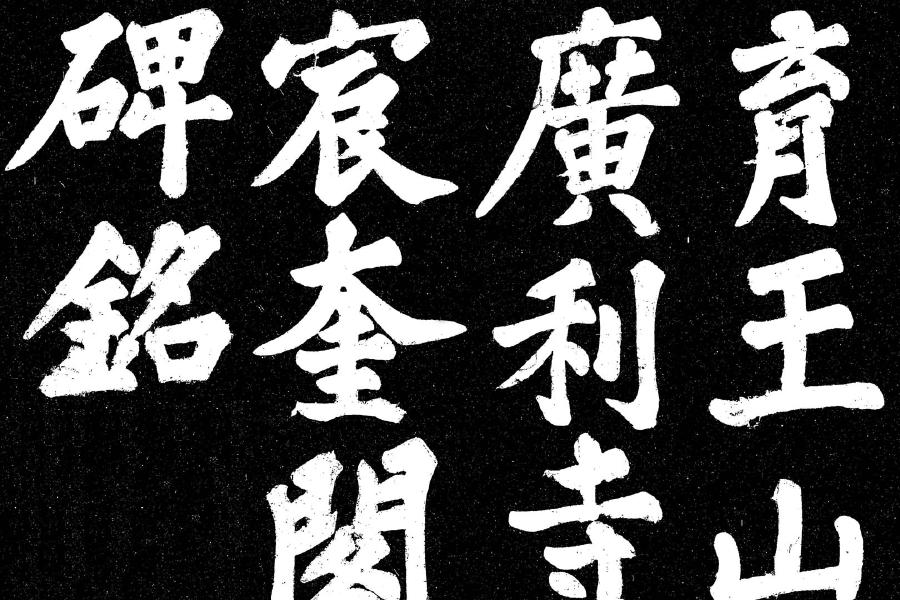 育王山
廣利寺
宸奎閣
碑銘